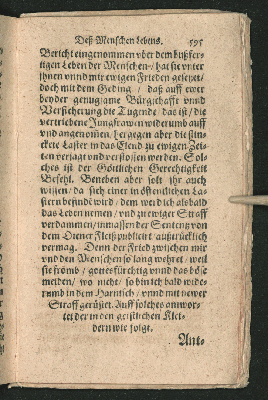 Deß Menschen Lebens. 595
Bericht eingenommen vber dem bußfer-
tigen Leben der Menschen / hat sie vnter
jhnen vnnd mir ewigen Frieden gesetzet /
doch mit dem Geding / daß auff ewer
beyder genugsame Bürgschafft vnnd
Versicherung die Tugende / das ist / die
vertriebene Jungfrawen widerumb auff
vnd angenommen / hergegen aber die stin-
ckete Laster in das Elend zu ewigen Zei-
ten verjagt vnd verstossen werden. Sol-
ches ist der Göttlichen Gerechtigkeit
Befehl. Beneben aber solt jhr auch
wissen / da sich einer in öffentlichen La-
stern befindt wird / dem werd ich als bald
das Leben nemen / vnd zu ewiger Straff
verdammen / inmassen der Sentenz von
dem Diener Fleiß publicirt / außtrücklich
vermag. Denn der Fried zwischen mir
vnd den Menschen so lang wehret / weil
sie fromb / gottesfürchtig vnnd das böse
meiden / wo nicht / so bin ich bald wide-
rumb in dem Harnisch / vnnd mit newer
Straff gerüstet. Auff solches antwor-
tet der in den geistlichen Klei-
dern wie folgt.
Ant-